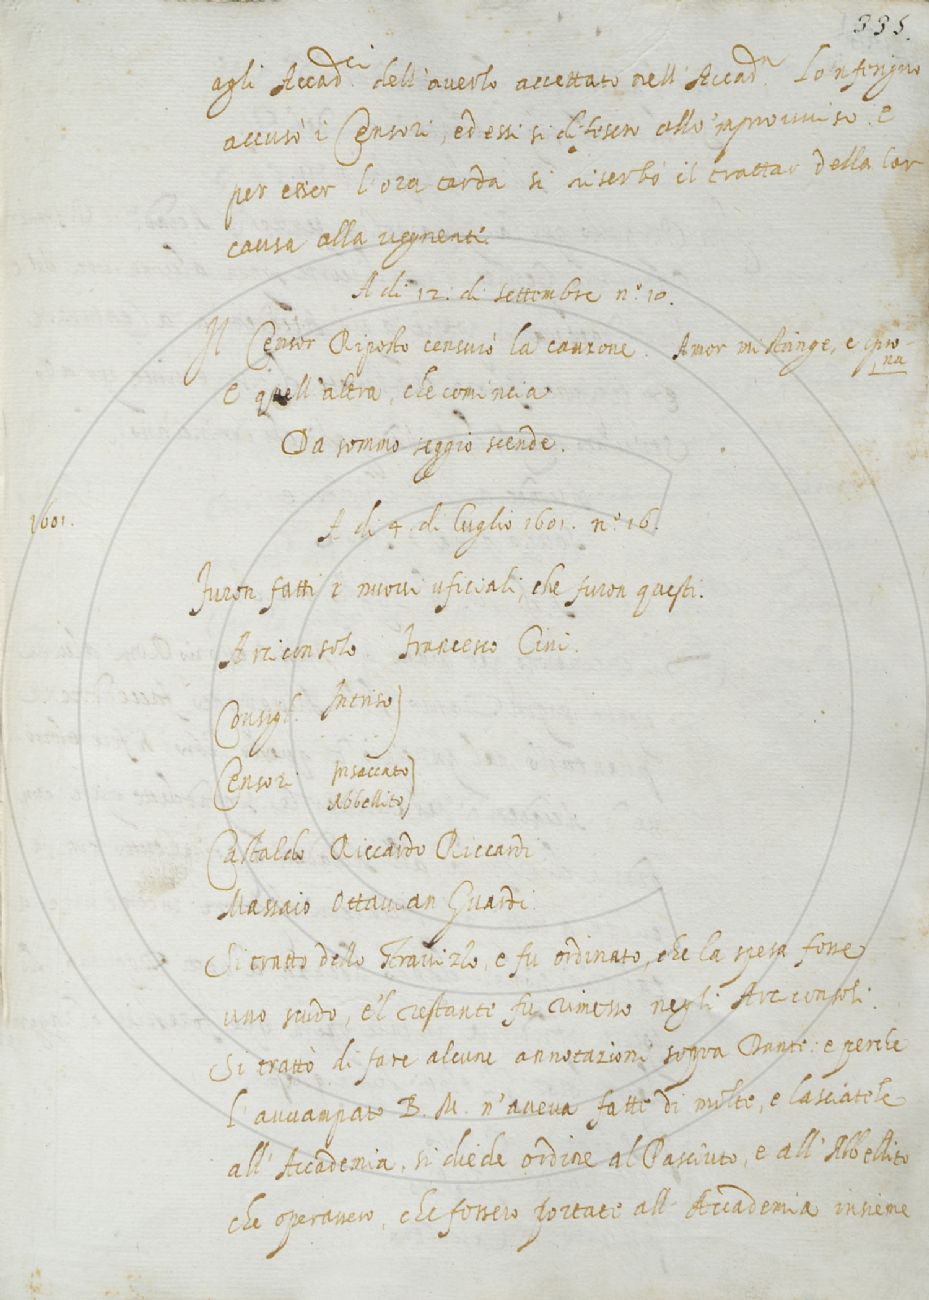 335.
agli Accad.ci dell'averlo accettato nell'Accad.a Lo'nferigno
accusò i Censori, ed essi si difesero allo'mprovviso. E
per esser l'ora tarda si riserbò il trattar della lor
causa alla vegnente.
A di 12. di settembre n.o 10.
Il Censor Riposto censurò la canzone. Amor mi stringe, e sprona
E quell'altra, che comincia
Da sommo seggio scende.
1601.
A di 4. di luglio 1601. n.o 16.
Furon fatti i nuovi uficiali, che furon questi.
Arciconsolo Francesco Cini.
Consigl. Intriso)
Censori Insaccato)
Abbellito)
Castaldo Riccardo Riccardi
Massaio Ottavian Guardi
Si trattò dello Stravizzo, e fu ordinato, che la spesa fosse
uno scudo, e'l restante fu rimesso negli Arciconsoli.
Si trattò di fare alcune annotazioni sopra Dante: e perche
l'avvampato B. M. n'aveva fatte di molte, e lasciatele
all'Accademia, si diede ordine al Pasciuto, e all'Abbellito
che operassero, che fossero portate all'Accademia insieme